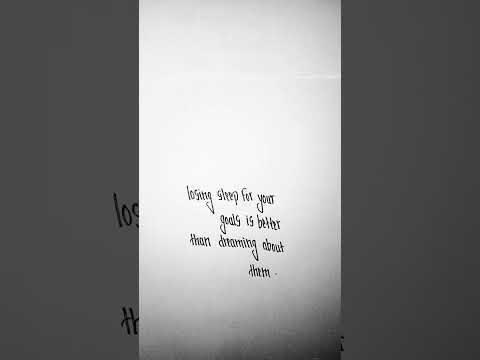 losing sleep for your
goals is better
than dreaming about
them.